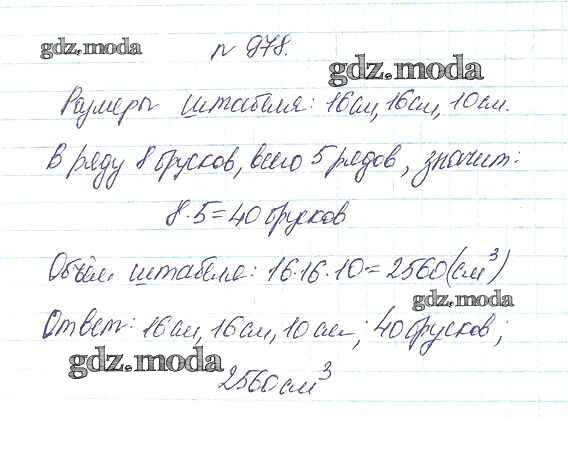 gdz.moda
n 978.
gdz.moda
Размеры штабеля: 16см, 16см, 10см.
В ряду 8 брусков, всего 5 рядов, значит:
8·5=40 брусков
Объём штабеля: 16·16·10=2560(см³)
gdz.moda
Ответ: 16см, 16см, 10см; 40 брусков;
gdz.moda
2560см³